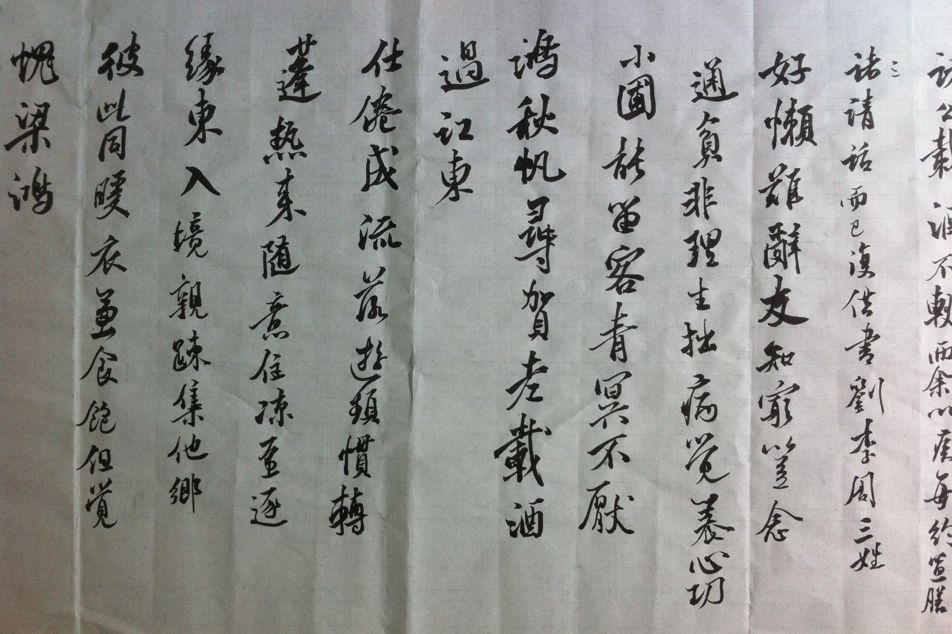 諸公載酒不輟而余以疾每約置膳
諸請話而已復借書劉李周三姓
好懶難辭友知窮豈念
通貧非理生拙病覺養心功
小圃能留客青冥不厭
鴻秋帆尋賀老載酒
過江東
仕倦成流落遊頻慣轉
蓬熱來隨意住涼至逐
緣東入境親疎集他鄉
彼此同暖衣兼食飽但覺
愧梁鴻